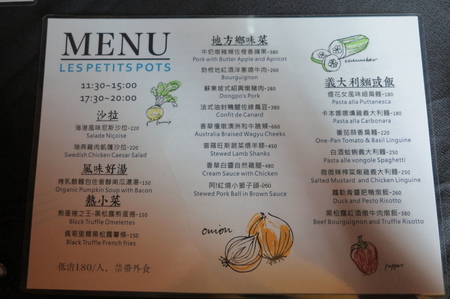 MENU
LES PETITS POTS
11:30~15:00
17:30~20:00
沙拉
海港風味尼斯沙拉-220
Salade Niçoise
瑞典雞肉凱薩沙拉-220
Swedish Chicken Caesar Salad
風味好湯
烤乳酪麵包佐香醇南瓜濃湯-150
Organic Pumpkin Soup with Bacon
熱小菜
煎蛋捲之王-黑松露煎蛋捲-150
Black Truffle Omelettes
瘋哥里爾黑松露薯條-150
Black Truffle French fries
低消180/人，禁帶外食
地方鄉味菜
牛奶燉豬頰佐橙香蘋果-380
Pork with Butter Apple and Apricot
勃根地紅酒洋蔥燒牛肉-380
Bourguignon
蘇東坡式紹興燉豬肉-380
Dongpo's Pork
法式油封鴨腿佐綠扁豆-380
Confit de Canard
香草檀燉澳洲和牛臉頰-660
Australia Braised Wagyu Cheeks
普羅旺斯蔬菜煨羊膝-880
Stewed Lamb Shanks
香草白醬自然雞腿-480
Cream Sauce with Chicken
阿!紅燒小獅子頭-260
Stewed Pork Ball in Brown Sauce
onion
cucumber
義大利麵或飯
煙花女風味細扁麵-280
Pasta alla Puttanesca
卡本娜煙燻雞義大利麵-280
Pasta alla Carbonara
番茄蒜香扁麵-280
One-Pan Tomato & Basil Linguine
白酒蛤蜊義大利麵-280
Pasta alle vongole Spaghetti
微微辣榨菜嫩雞義大利麵-280
Salted Mustard and Chicken Linguine
羅勒青醬肥鴨燉飯-380
Duck and Pesto Risotto
黑松露紅酒燉牛肉燉飯-380
Beef Bourguignon and Truffle Risotto
pepper